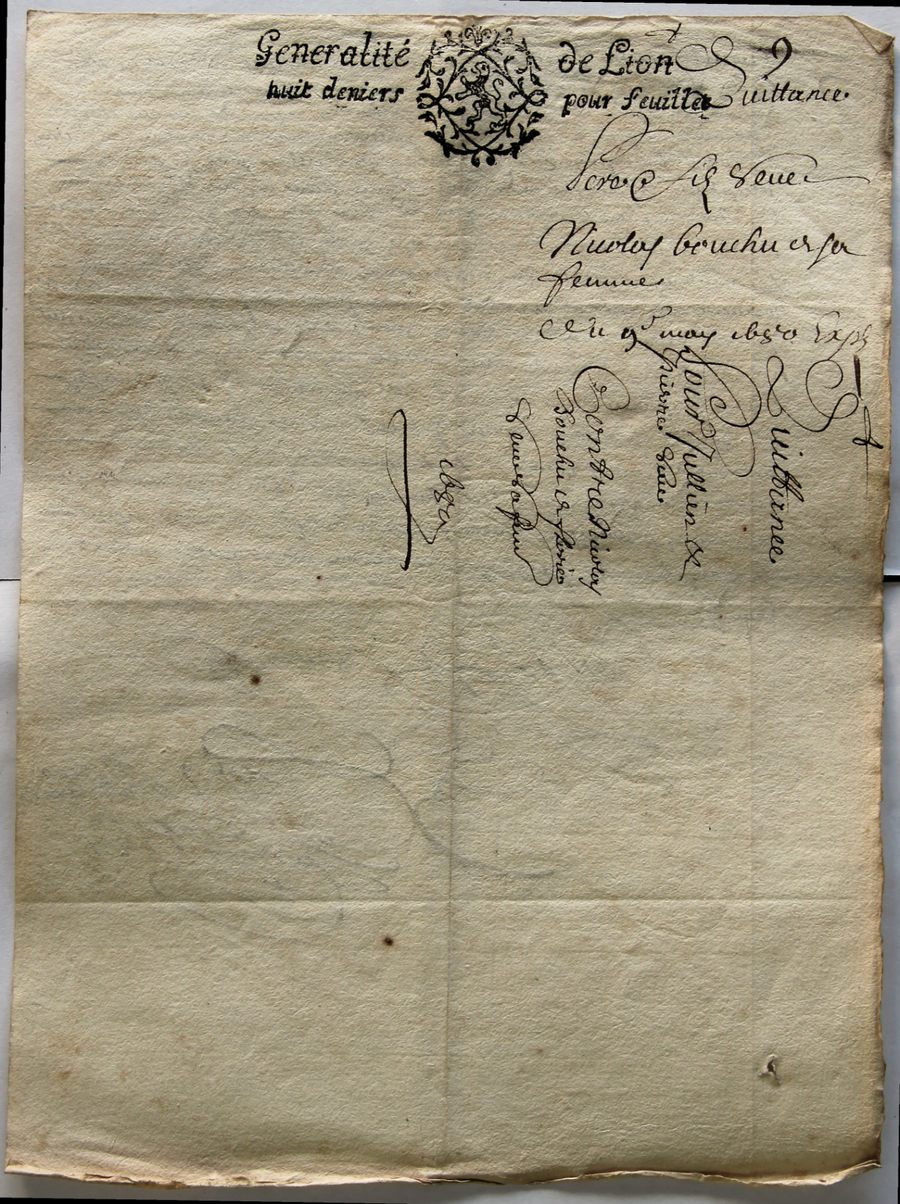 Generalité de Lion
huit deniers pour feuillet
9
Quittance
Pere & fils
Nicolas bouchu et sa
femme
du 9e may 1680
Quittance
Pour Jullien &
pierre
Contre Nicolas
Bouchu & pierre
1680